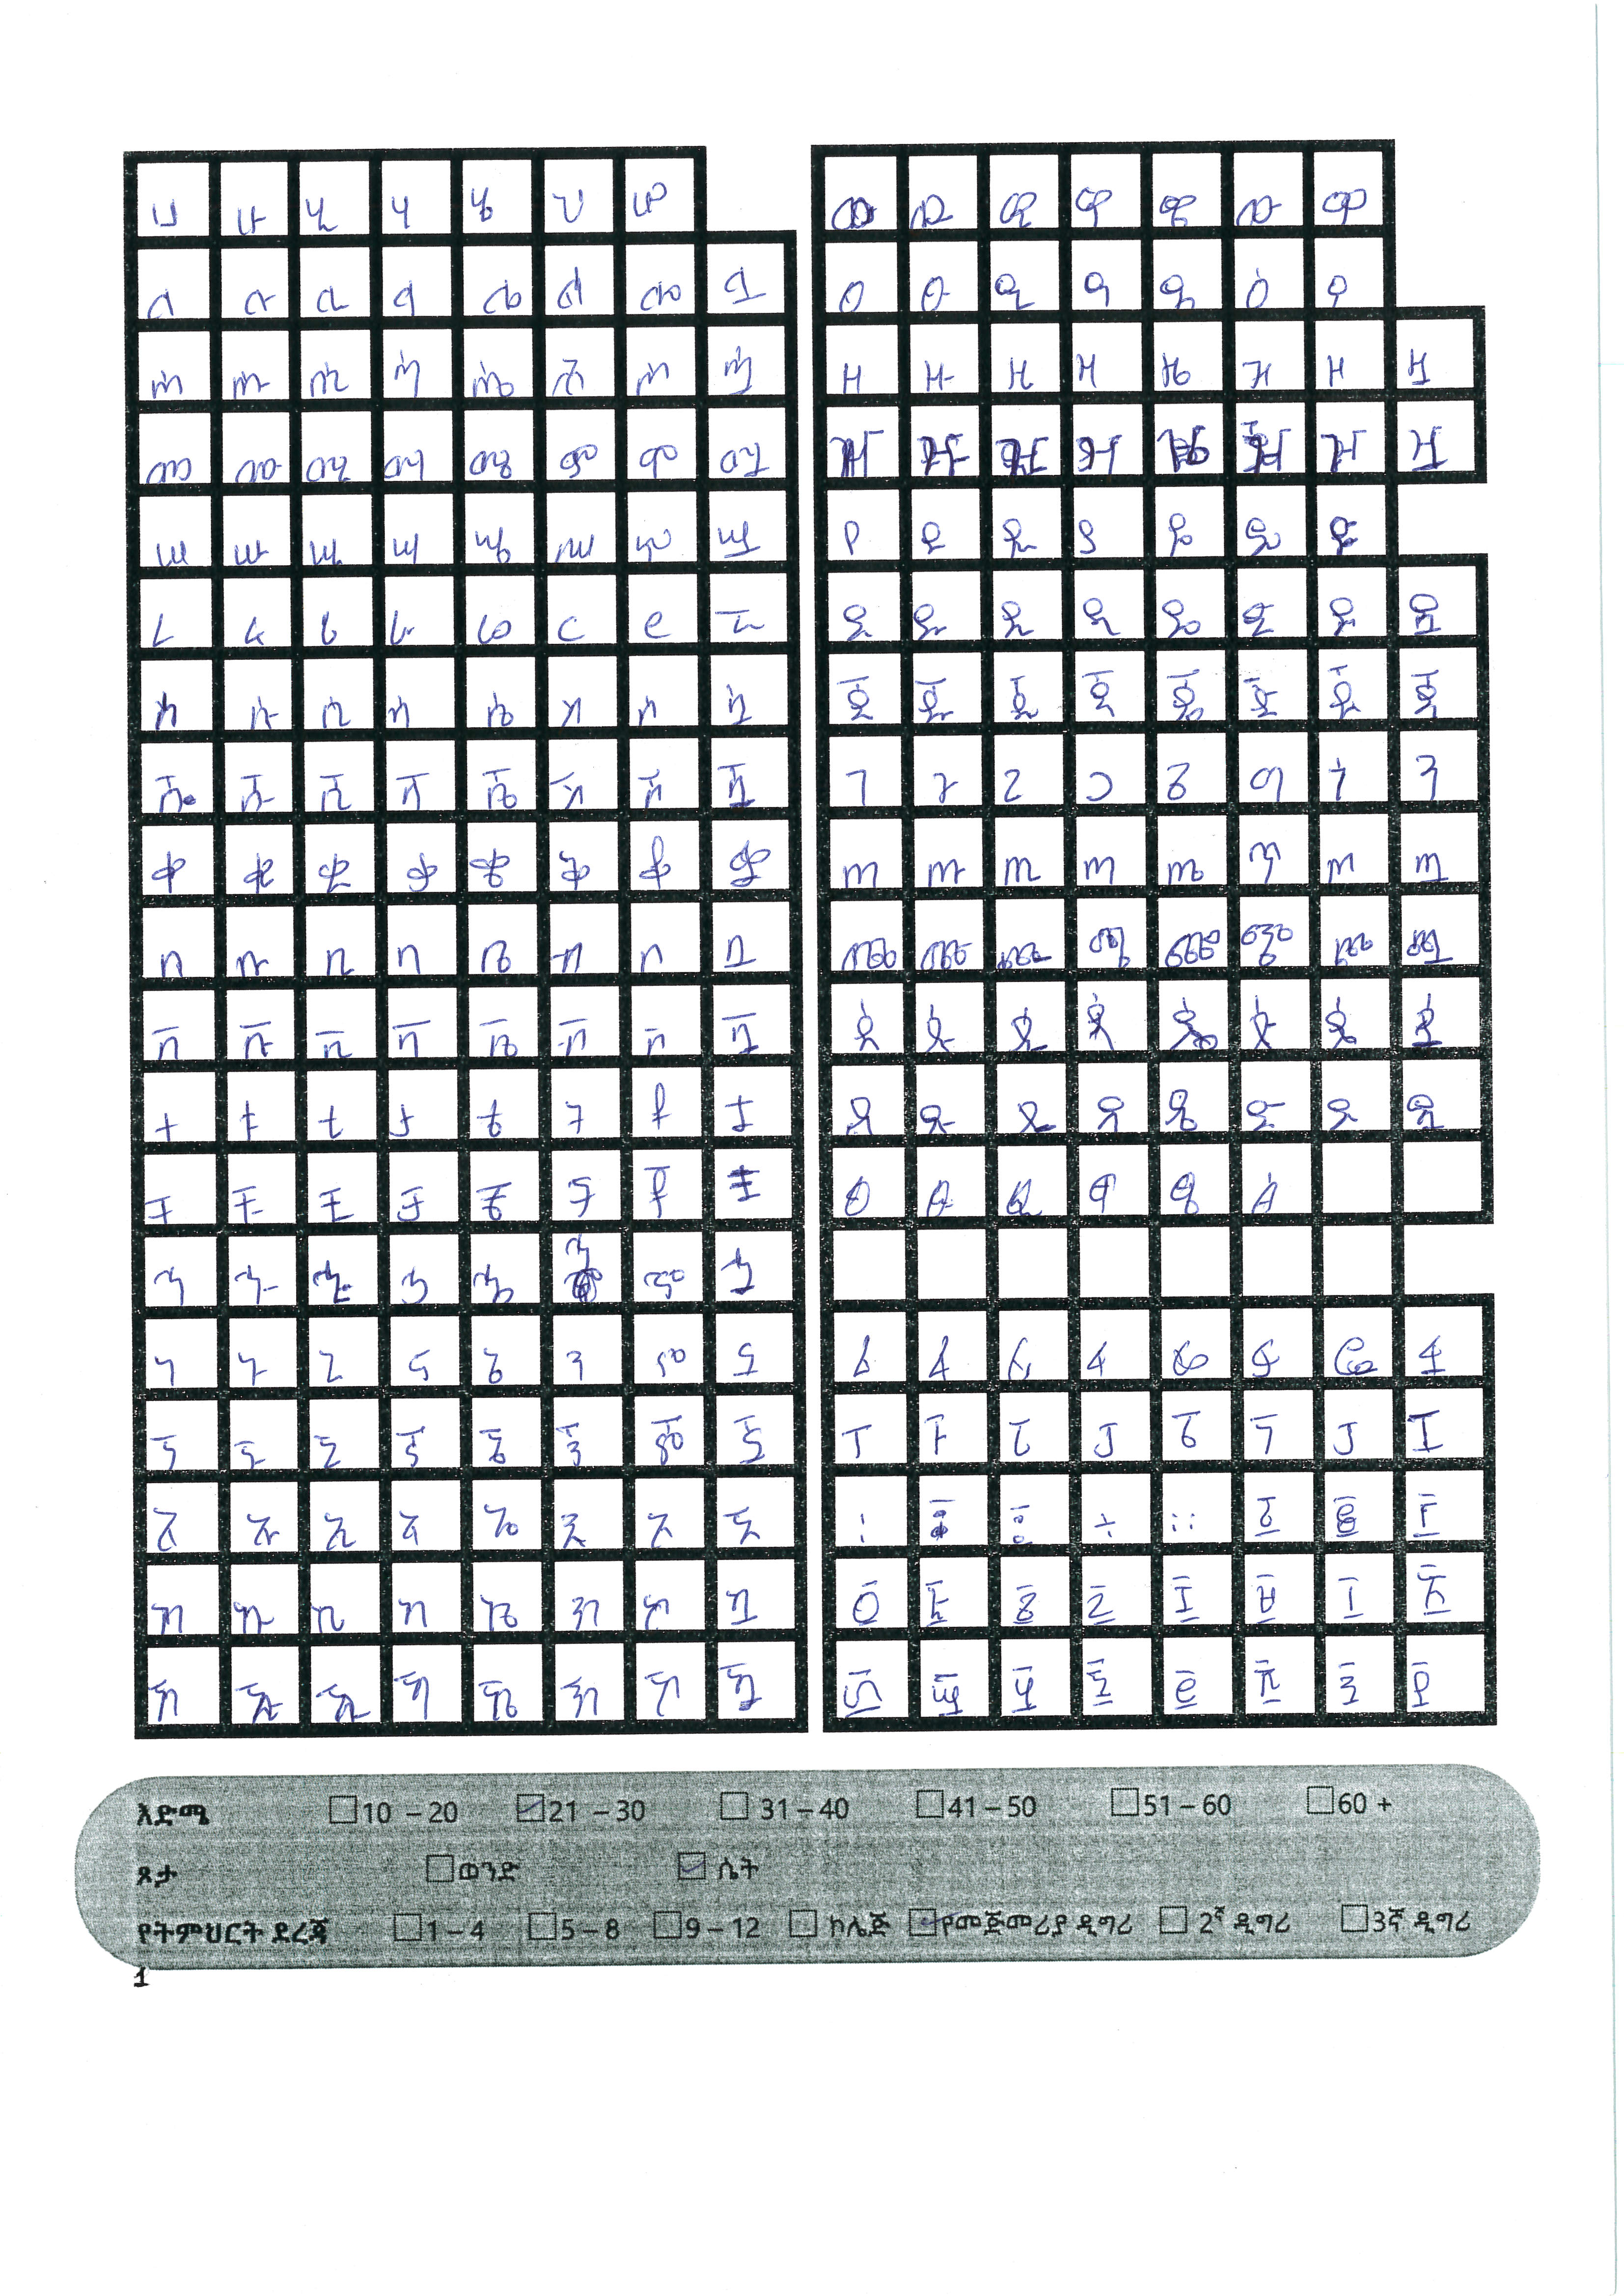 ሀ ሁ ሂ ሃ ሄ ህ ሆ
ለ ሉ ሊ ላ ሌ ል ሎ ሏ
ሐ ሑ ሒ ሓ ሔ ሕ ሖ ሗ
መ ሙ ሚ ማ ሜ ም ሞ ሟ
ሠ ሡ ሢ ሣ ሤ ሥ ሦ ሧ
ረ ሩ ሪ ራ ሬ ር ሮ ሯ
ሰ ሱ ሲ ሳ ሴ ስ ሶ ሷ
ሸ ሹ ሺ ሻ ሼ ሽ ሾ ሿ
ቀ ቁ ቂ ቃ ቄ ቅ ቆ ቋ
በ ቡ ቢ ባ ቤ ብ ቦ ቧ
ቨ ቩ ቪ ቫ ቬ ቭ ቮ ቯ
ተ ቱ ቲ ታ ቴ ት ቶ ቷ
ቸ ቹ ቺ ቻ ቼ ች ቾ ቿ
ኀ ኁ ኂ ኃ ኄ ኅ ኆ ኋ
ነ ኑ ኒ ና ኔ ን ኖ ኗ
ኘ ኙ ኚ ኛ ኜ ኝ ኞ ኟ
አ ኡ ኢ ኣ ኤ እ ኦ ኧ
ከ ኩ ኪ ካ ኬ ክ ኮ ኳ
ኸ ኹ ኺ ኻ ኼ ኽ ኾ
ወ ዉ ዊ ዋ ዌ ው ዎ
ዐ ዑ ዒ ዓ ዔ ዕ ዖ
ዘ ዙ ዚ ዛ ዜ ዝ ዞ ዟ
ዠ ዡ ዢ ዣ ዤ ዥ ዦ ዧ
የ ዩ ዪ ያ ዬ ይ ዮ
ደ ዱ ዲ ዳ ዴ ድ ዶ ዷ
ጀ ጁ ጂ ጃ ጄ ጅ ጆ ጇ
ገ ጉ ጊ ጋ ጌ ግ ጎ ጓ
ጠ ጡ ጢ ጣ ጤ ጥ ጦ ጧ
ጨ ጩ ጪ ጫ ጬ ጭ ጮ ጯ
ጰ ጱ ጲ ጳ ጴ ጵ ጶ ጷ
ጸ ጹ ጺ ጻ ጼ ጽ ጾ ጿ
ፀ ፁ ፂ ፃ ፄ ፅ
ፈ ፉ ፊ ፋ ፌ ፍ ፎ ፏ
ፐ ፑ ፒ ፓ ፔ ፕ ፖ ፗ
፩ ፪ ፫
፬ ፭ ፮ ፯ ፰ ፱ ፲ ፳
፴ ፵ ፶ ፷ ፸ ፹ ፺ ፻
እድሜ 10 – 20 21 – 30 31 – 40 41 – 50 51 – 60 60 +
ጾታ ወንድ ሴት
የትምህርት ደረጃ 1 – 4 5 – 8 9 – 12 ኮሌጅ የመጀመሪያ ዲግሪ 2ኛ ዲግሪ 3ኛ ዲግሪ
1